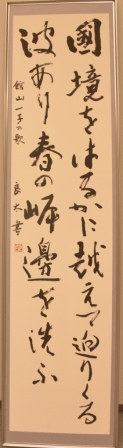 國境をはるかに越えて迫りくる
波あり春の岬邊を洗ふ
館山一子の歌
良太書